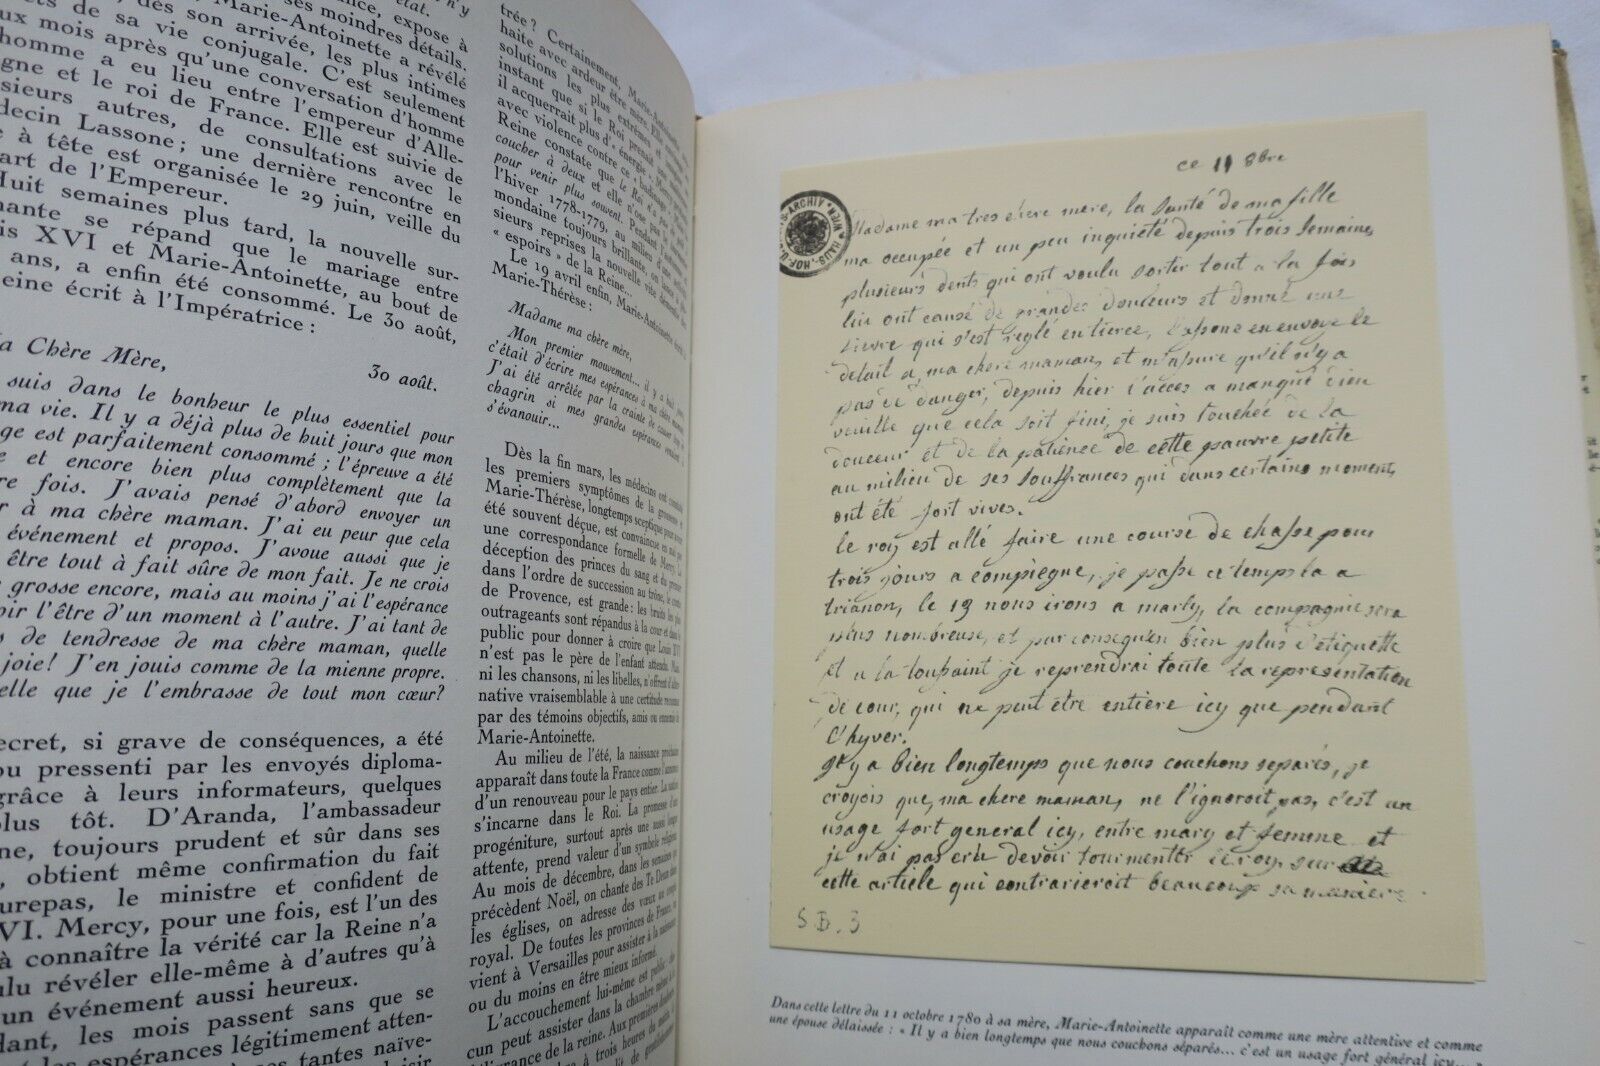 ance, expose à
ses moindres détails.
, dès son arrivée, les plus intimes
Marie-Antoinette a révélé
ets de sa vie conjugale. C'est seulement
ux mois après qu'une conversation d'homme
homme a eu lieu entre l'empereur d'Alle-
gne et le roi de France. Elle est suivie de
sieurs autres, de consultations avec le
decin Lassone; une dernière rencontre en
e à tête est organisée le 29 juin, veille du
art de l'Empereur.
Huit semaines plus tard, la nouvelle sur-
nante se répand que le mariage entre
is XVI et Marie-Antoinette, au bout de
ans, a enfin été consommé. Le 30 août,
eine écrit à l'Impératrice :
a Chère Mère,
30 août.
suis dans le bonheur le plus essentiel pour
ma vie. Il y a déjà plus de huit jours que mon
ge est parfaitement consommé ; l'épreuve a été
e et encore bien plus complètement que la
re fois. J'avais pensé d'abord envoyer un
r à ma chère maman. J'ai eu peur que cela
événement et propos. J'avoue aussi que je
être tout à fait sûre de mon fait. Je ne crois
grosse encore, mais au moins j'ai l'espérance
oir l'être d'un moment à l'autre. J'ai tant de
s de tendresse de ma chère maman, quelle
joie! J'en jouis comme de la mienne propre.
elle que je l'embrasse de tout mon cœur?
ecret, si grave de conséquences, a été
ou pressenti par les envoyés diploma-
grâce à leurs informateurs, quelques
plus tôt. D'Aranda, l'ambassadeur
ne, toujours prudent et sûr dans ses
, obtient même confirmation du fait
urepas, le ministre et confident de
VI. Mercy, pour une fois, est l'un des
à connaître la vérité car la Reine n'a
ulu révéler elle-même à d'autres qu'à
un événement aussi heureux.
dant, les mois passent sans que se
t les espérances légitimement atten-
tantes naïve-
trée? Certainement, Marie-Antoi
haite avec ardeur être mère. Elle
solutions les plus extrêmes et
instant que si le Roi prenait une
il acquerrait plus d'« énergie ». Mercy
avec violence contre ce « badinage
Reine constate que le Roi n'a pas
coucher à deux et elle n'ose
pour venir plus souvent. Pendant
l'hiver 1778-1779, au milieu
mondaine toujours brillante, on
sieurs reprises la nouvelle des
« espoirs » de la Reine...
Le 19 avril enfin, Marie-Antoinette écrit à
Marie-Thérèse :
Madame ma chère mère,
Mon premier mouvement... il y a huit jours,
c'était d'écrire mes espérances à ma chère maman.
J'ai été arrêtée par la crainte de causer trop de
chagrin si mes grandes espérances venaient à
s'évanouir...
Dès la fin mars, les médecins ont constaté
les premiers symptômes de la grossesse
Marie-Thérèse, longtemps sceptique pour avoir
été souvent déçue, est convaincue en mai par
une correspondance formelle de Mercy. La
déception des princes du sang et du premier
dans l'ordre de succession au trône, le comte
de Provence, est grande: les bruits les plus
outrageants sont répandus à la cour et dans le
public pour donner à croire que Louis XVI
n'est pas le père de l'enfant attendu. Mais
ni les chansons, ni les libelles, n'offrent d'alter-
native vraisemblable à une certitude reconnue
par des témoins objectifs, amis ou ennemis de
Marie-Antoinette.
Au milieu de l'été, la naissance prochaine
apparaît dans toute la France comme l'annonce
d'un renouveau pour le pays entier. La nation
s'incarne dans le Roi. La promesse d'une
progéniture, surtout après une aussi longue
attente, prend valeur d'un symbole religieux.
Au mois de décembre, dans les semaines qui
précèdent Noël, on chante des Te Deum dans
les églises, on adresse des vœux au couple
royal. De toutes les provinces de France, on
vient à Versailles pour assister à la naissance
ou du moins en être mieux informé.
L'accouchement lui-même est public : cha-
cun peut assister dans la chambre même à la
délivrance de la reine. Aux premières douleurs
à trois heures du matin,
ce 11 8bre
HAUS-, HOF-U.
ARCHIV WIEN
Madame ma tres chere mere, la santé de ma fille
ma occupée et un peu inquiété depuis trois semaines
plusieurs dents qui ont voulu sortir tout a la fois
lui ont causé de grandes douleurs et donné une
fievre qui s'est reglé en tierce, lassone en envoye le
detail a ma chere maman, et m'assure qu'il n'y a
pas de danger, depuis hier l'acces a manqué dieu
veuille que cela soit fini, je suis touchée de la
douceur et de la patience de cette pauvre petite
au milieu de ses souffrances qui dans certains moments
ont été fort vives.
le roy est allé faire une course de chasse pour
trois jours a compiegne, je passe ce temps la a
trianon, le 13 nous irons a marly, la compagnie sera
plus nombreuse, et par consequen bien plus d'etiquette
et a la toussaint je reprendrai toute la representation
de cour, qui ne peut être entière icy que pendant
l'hyver.
Il y a bien longtemps que nous couchons separés, je
croyois que, ma chere maman, ne l'ignoroit pas, c'est un
usage fort general icy, entre mary et femme et
je n'ai pas cru devoir tourmenter le roy sur
cette article qui contrarieroit beaucoup sa maniere
S.B. 3
Dans cette lettre du 11 octobre 1780 à sa mère, Marie-Antoinette apparaît comme une mère attentive et comme
une épouse délaissée : « Il y a bien longtemps que nous couchons séparés... c'est un usage fort général icy... »